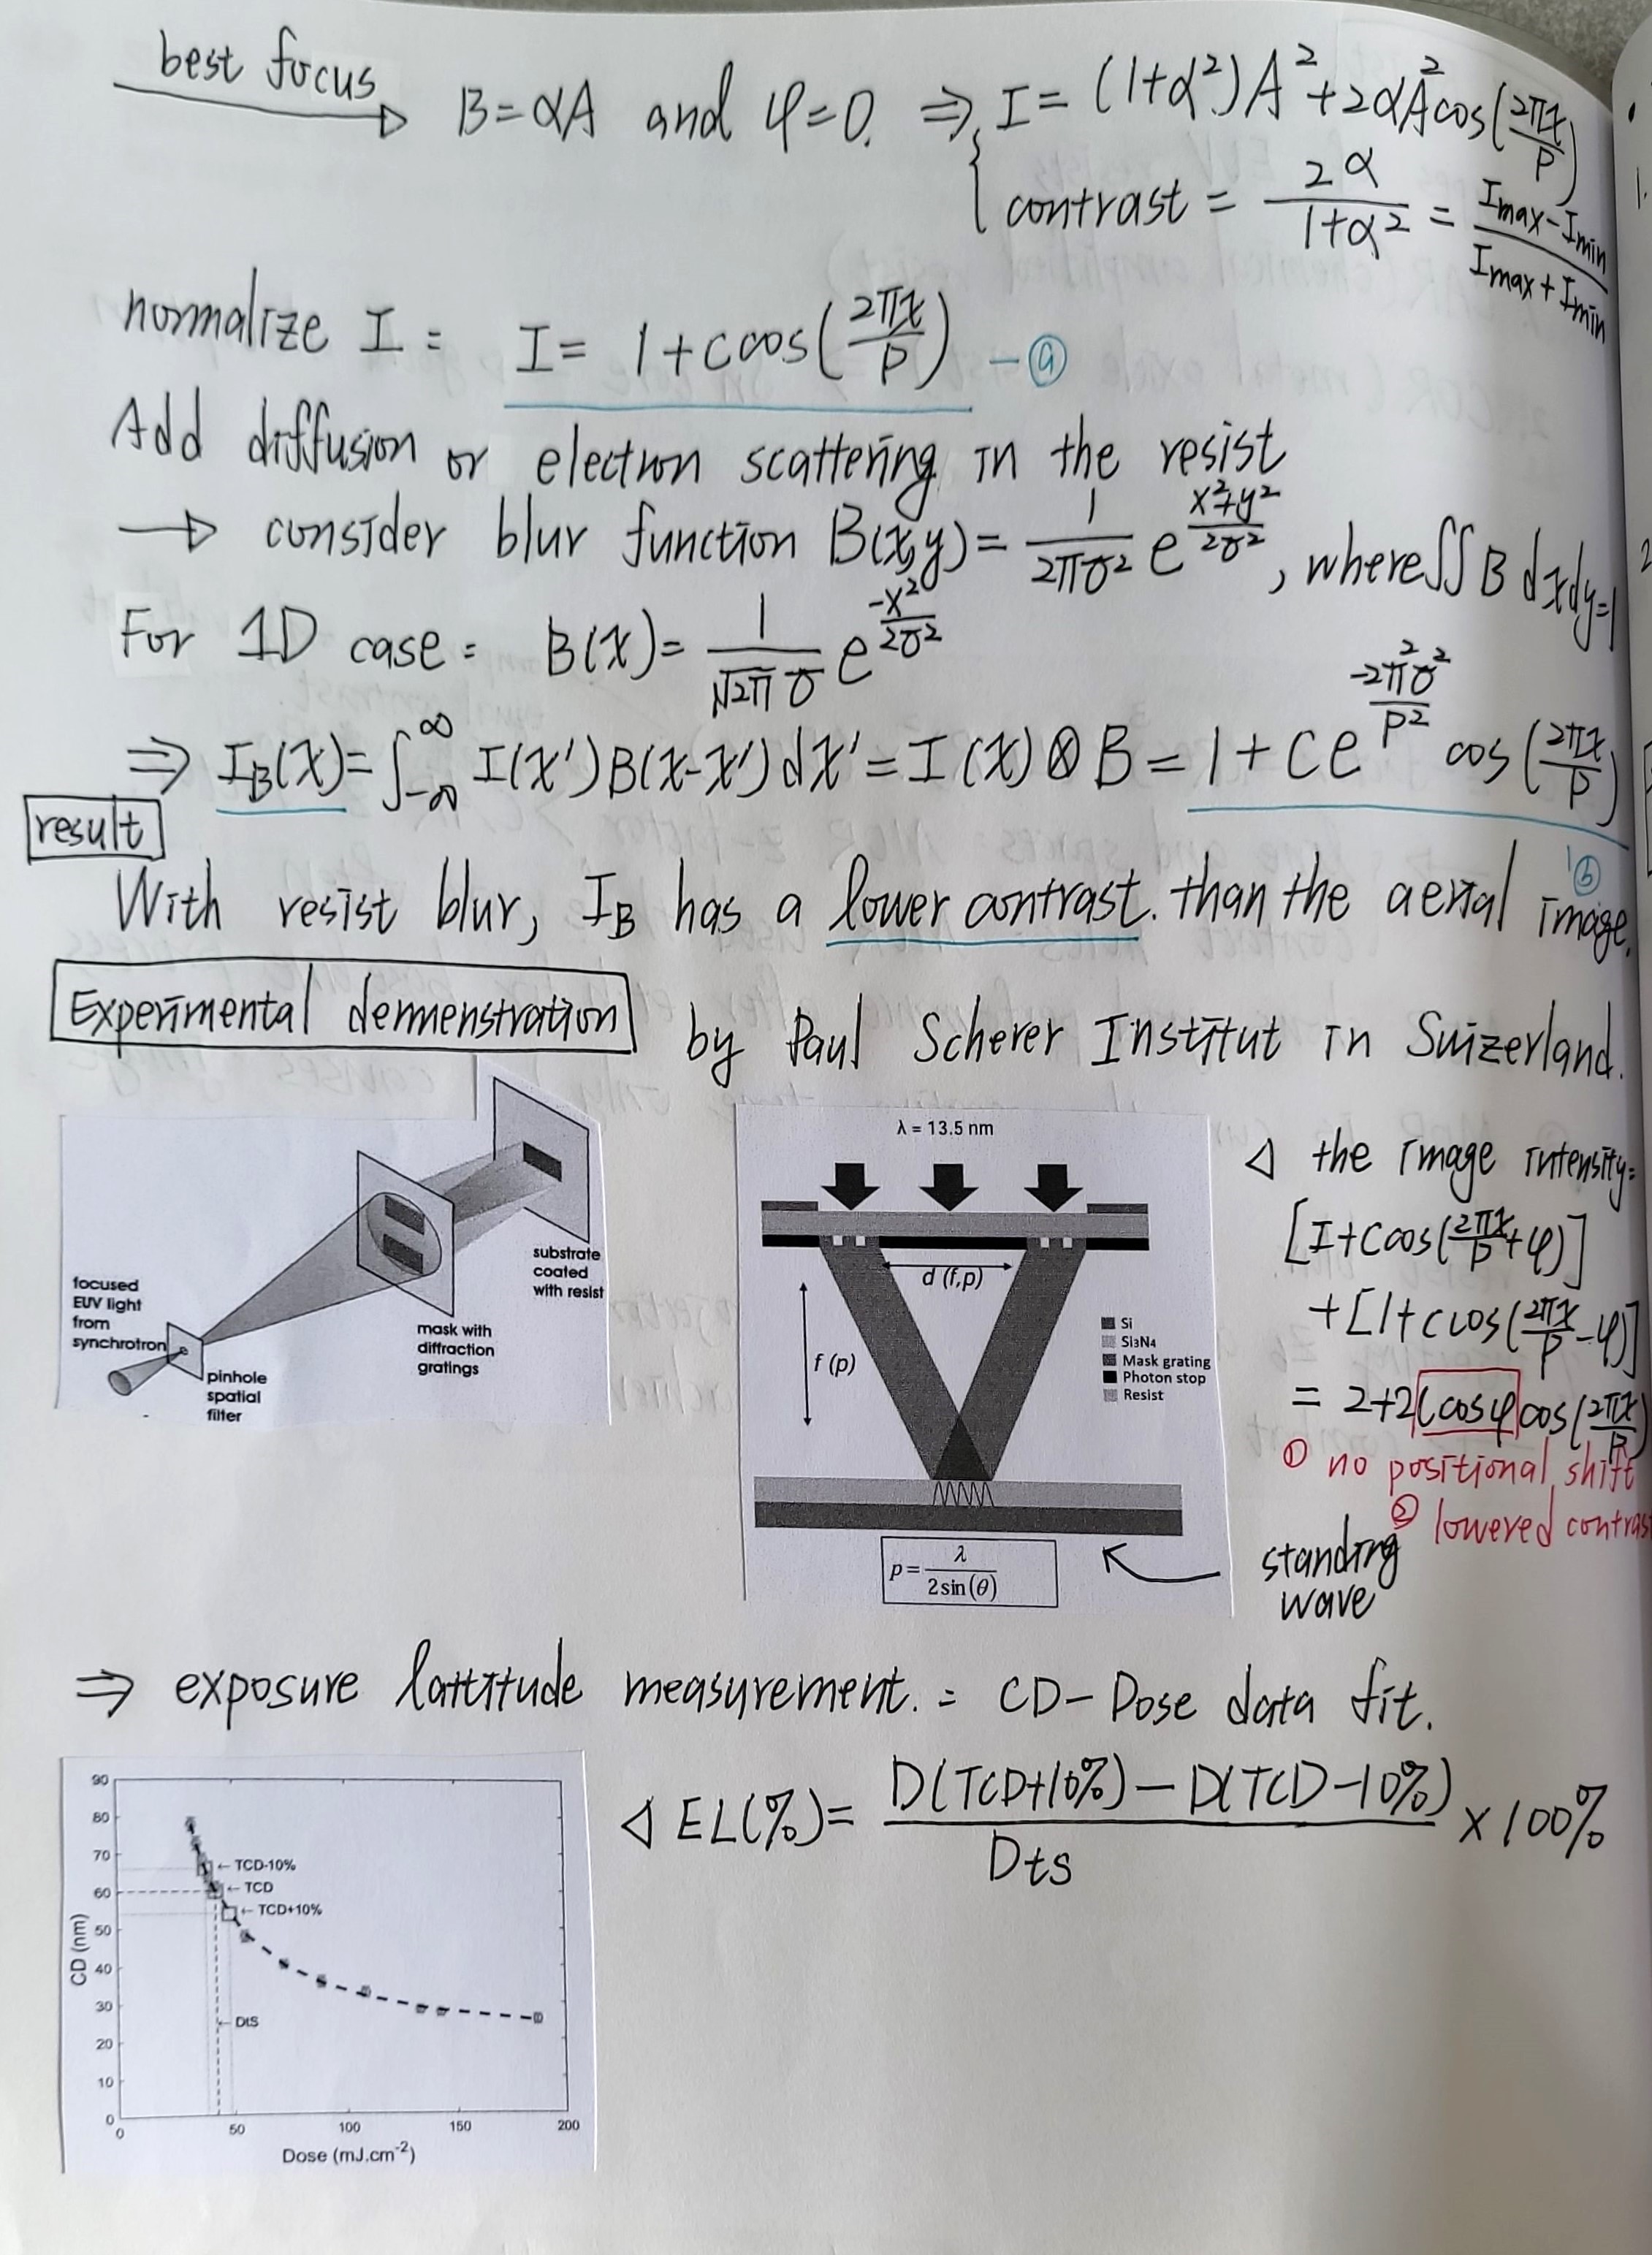 best focus
B=αA and φ=0. ⇒ I= (1+α²)A²+2αA²cos(2πx/P)
contrast = 2α/(1+α²) = (Imax-Imin)/(Imax+Imin)
normalize I : I= 1+ccos(2πx/P) -ⓐ
Add diffusion or electron scattering in the resist
→ consider blur function B(x,y)= 1/(2πσ²) e^((x²+y²)/(2σ²)), where ∬B dxdy=1
For 1D case: B(x)= 1/(√2π σ) e^(-x²/(2σ²))
⇒ I_B(x)= ∫_-∞^∞ I(x')B(x-x')dx' = I(x)⊗B = 1+Ce^(-2π²σ²/P²) cos(2πx/P)
ⓑ
result
With resist blur, I_B has a lower contrast. than the aerial image.
Experimental demenstration by Paul Scherer Institut in Suizerland.
focused
EUV light
from
synchrotron
pinhole
spatial
filter
mask with
diffraction
gratings
substrate
coated
with resist
λ = 13.5 nm
d (f,p)
f (p)
Si
Si₃N₄
Mask grating
Photon stop
Resist
p= λ/(2sin(θ))
◁ the image intensity:
[I+Ccos(2πx/P+φ)]
+[1+ccos(2πx/P-φ)]
= 2+2Ccosφcos(2πx/P)
① no positional shift
② lowered contrast
standing
wave
⇒ exposure lattitude measurement. = CD-Dose data fit.
◁ EL(%)= (D(TCD+10%)-D(TCD-10%))/Dts × 100%
90
80
70
60
50
40
30
20
10
0
CD (nm)
←TCD-10%
←TCD
←TCD+10%
←DtS
0 50 100 150 200
Dose (mJ.cm⁻²)